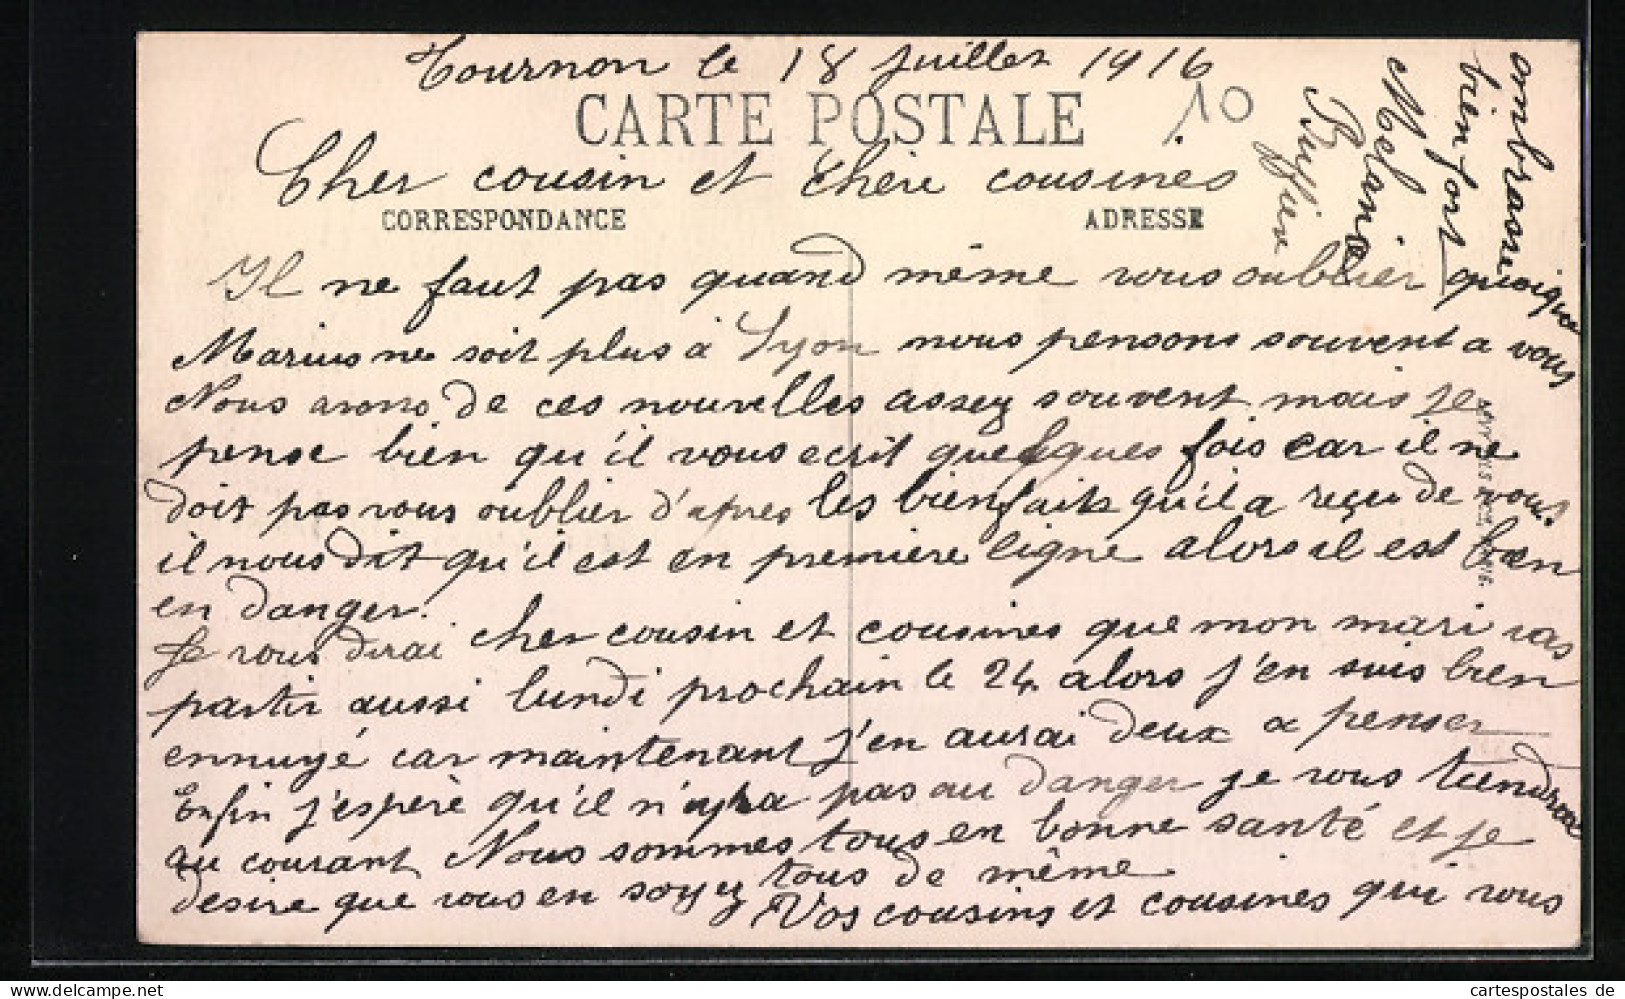 Tournon le 18 Juillet 1916
CARTE POSTALE
10
Cher cousin et chère cousines
CORRESPONDANCE
ADRESSE
Il ne faut pas quand même vous oublier quoique
Marius ne soit plus à Lyon nous pensons souvent a vous
Nous avons de ces nouvelles assez souvent mais je
pense bien qu'il vous ecrit quelques fois car il ne
doit pas vous oublier d'apres les bienfaits qu'il a reçu de vous.
il nous dit qu'il est en premiere ligne alors il est bien
en danger.
Je vous dirai cher cousin et cousines que mon mari vas
partir aussi lundi prochain le 24 alors j'en suis bien
ennuyé car maintenant j'en aurai deux a penser
Enfin j'espère qu'il n'yra pas au danger je vous tiendrai
au courant Nous sommes tous en bonne santé et je
desire que vous en soyez tous de même.
Vos cousins et cousines qui vous
ombrasons
bien fort
Melanie
Ruffier
cartespostales de